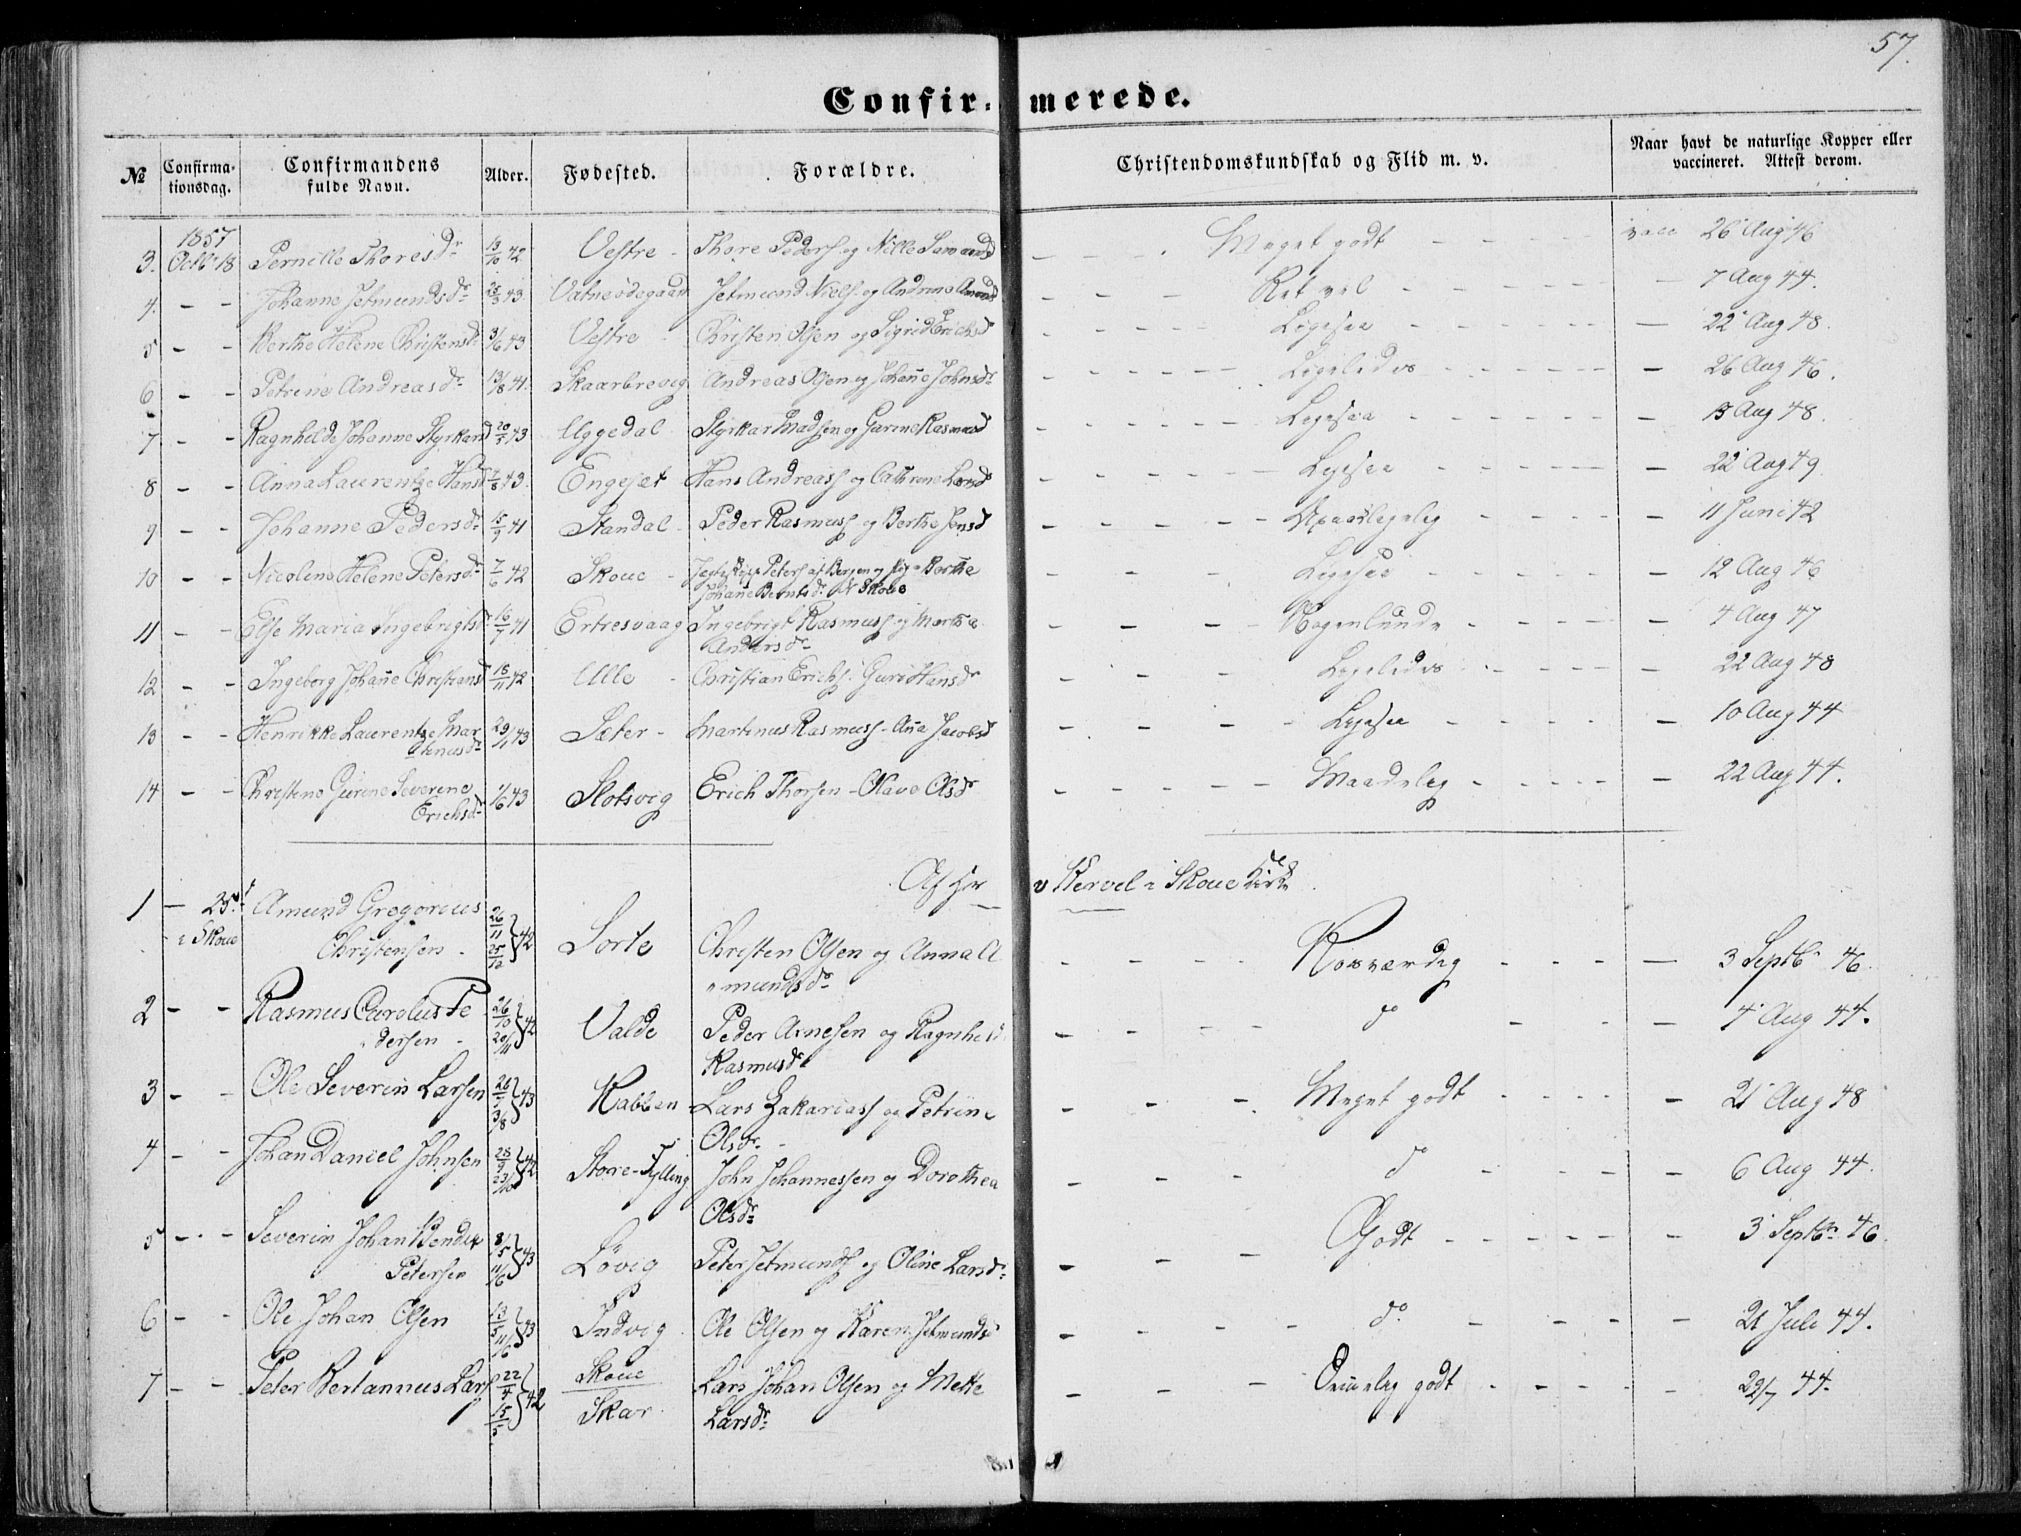 57.
Confirmerede.
No Confirmationsdag. Confirmandens fulde Navn. Alder. Fødested. Forældre. Christendomskundskab og Flid m. v. Naar havt de naturlige Kopper eller vaccineret. Attest derom.
1857
3. Octbr 18 Pernille Thoresdr 13/10 42 Vestre - Thore Peders og Nille - - - Meget godt - - - vacc 26 Aug 46
4. - - Johanne Jetmundsdr 43. Vatneødegaard Jetmund Niels. og Andrine - - - Ret vel - - - 7 Aug 44.
5 - - Berthe Helene Christensdr 3/6 43 Vestre - Christen Olsen og Sigrid Erichsd - - - Ligesaa - - - 22 Aug 48.
6 - - Petrine Andreasdr 13/8 41. Skaarbrevig Andreas Olsen og Johane Johnsdr - - - Ligeledes - - - 26 Aug 46.
7 - - Ragnhilde Johanne Styrkard 43 Uggedal Styrkar Madsen og Gurine Rasmusd - - - Ligesaa - - - 13 Aug 48.
8 - - Anna Laurentze Hansd 7/8 43. Engeset Hans Andreass og Cathrine Larsd - - - Ligesaa - - - 22 Aug 49
9 - - Johanne Pedersdr 15/9 41 Standal - Peder Rasmuss og Berthe Jensd - - - Upaaklagelig - - - 11 Juni 42
10 - - Nicoline Helene Petersdr 7/6 42 Skoue - Peters af Bergen og Pige Berthe
Johane Berntsdr. Skoue - - - Ligesaa - - - 12 Aug 46
11 - - Else Maria Ingebrigtsdr 16/7 41 Ertresvaag Ingebrigt Rasmuss og Marthe
Andersdr - - - Nogenlunde - - - 4 Aug 47
12 - - Ingeborg Johane Christiansd 18/11 42 Ulle - Christian Erichs. Guri Hansdr - - - Ligeledes - - - 22 Aug 48
13 - - Henrikke Laurentze Mar
tinusdr 29/11 43 Sæter - Martinus Rasmuss - Ana Jacobsd - - - Ligesaa - - - 10 Aug 44
14 - - Christine Gurine Severine
Erichsdr 1/6 43 Slotsvig Erich Thorsen - Olave Olsdr - - - Maadelig - - - 22 Aug 44.
Af Hr v Kervel i Skoue Kirke
1 - 25. i Skoue Amund Gregorius
Christensen - 26/11 25/12 } 42 Sorte Christen Olsen og Anna A
mundsdr - - - Rosværdig - - - 3 Septbr 46.
2 - - Rasmus Carolus Pe
dersen - 26/10 20/11 } 42 Valde Peder Arnesen og Ragnhild
Rasmusdr - - - do - - - 4 Aug 44.
3 - - Ole Severin Larsen 3/8 } 43 Kabben Lars Zakariass og Petrine
Olsdr - - - Meget godt - - - 21 Aug 48
4 - - Johan Daniel Johnsen 28/9 23/10 } 42 Store-Fylling John Johannessen og Dorothea
Olsdr - - - do - - - 6 Aug 44.
5 - - Severin Johan Bendix
Petersen 8/5 11/6 } 43 Løvig Peter Jetmunds og Oline Larsdr - - - Godt - - - 3 Septbr 46.
6 - - Ole Johan Olsen 13/5 11/6 } 43 Indvig Ole Olsen og Karen Jetmundsd - - - do - - - 21 Juli 44.
7 - - Peter Bertannus Lars 22/4 } 42 Skoue
Skar Lars Johan Olsen og Mette
Larsdr - - - godt - - - 22/7 44.